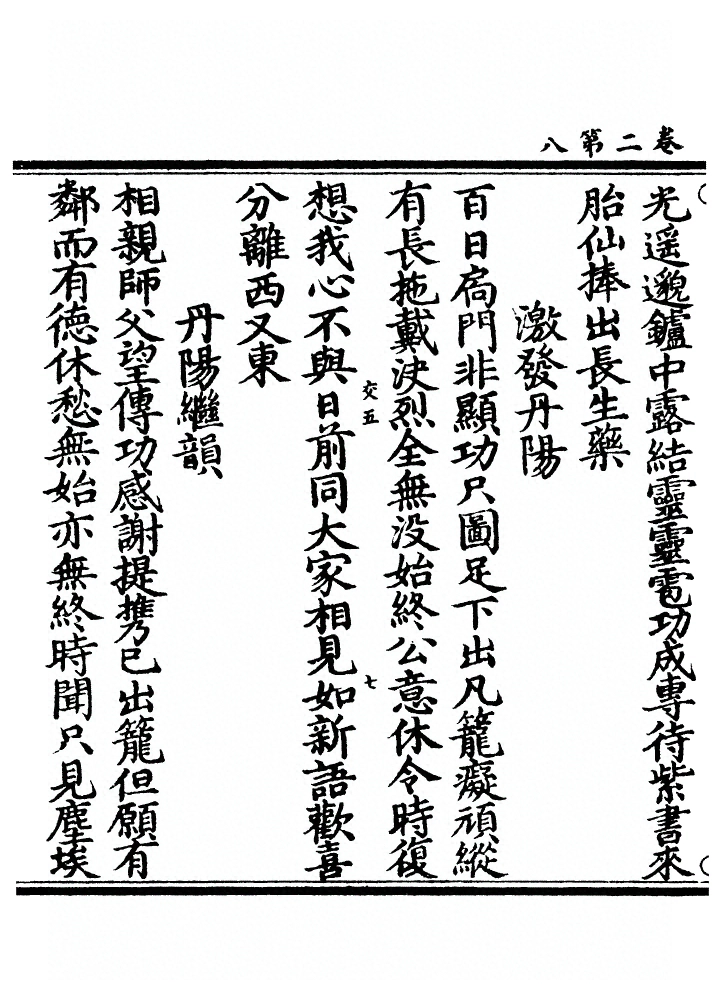 卷二第八
光遥邈鑪中露結靈靈電功成專待紫書來
胎仙捧出長生藥
激發丹陽
百日扃門非顯功只圖足下出凡籠癡頑縱
有長拖戴決烈全無没始終公意休令時復
想我心不與日前同大家相見如新語歡喜
交五
七
分離西又東
丹陽繼韻
相親師父望傳功感謝提攜已出籠但願有
鄰而有德休愁無始亦無終時聞只見塵埃